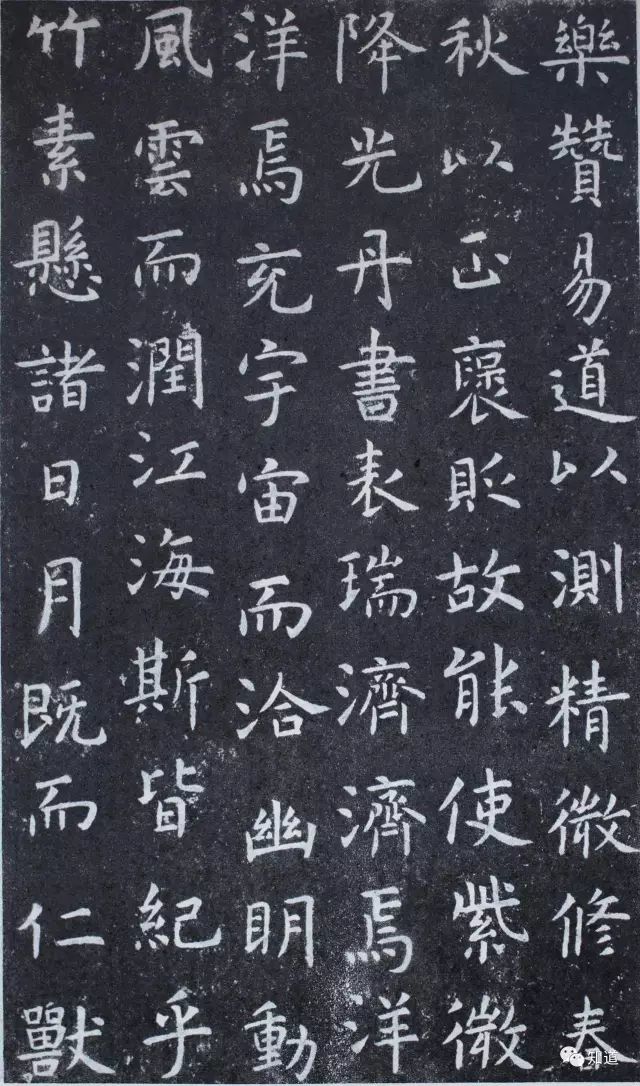 樂贊易道以測精微修春
秋以正襃貶故能使紫微
降光丹書表瑞濟濟焉洋
洋焉充宇宙而洽幽明動
風雲而潤江海斯皆紀乎
竹素懸諸日月既而仁獸
知道